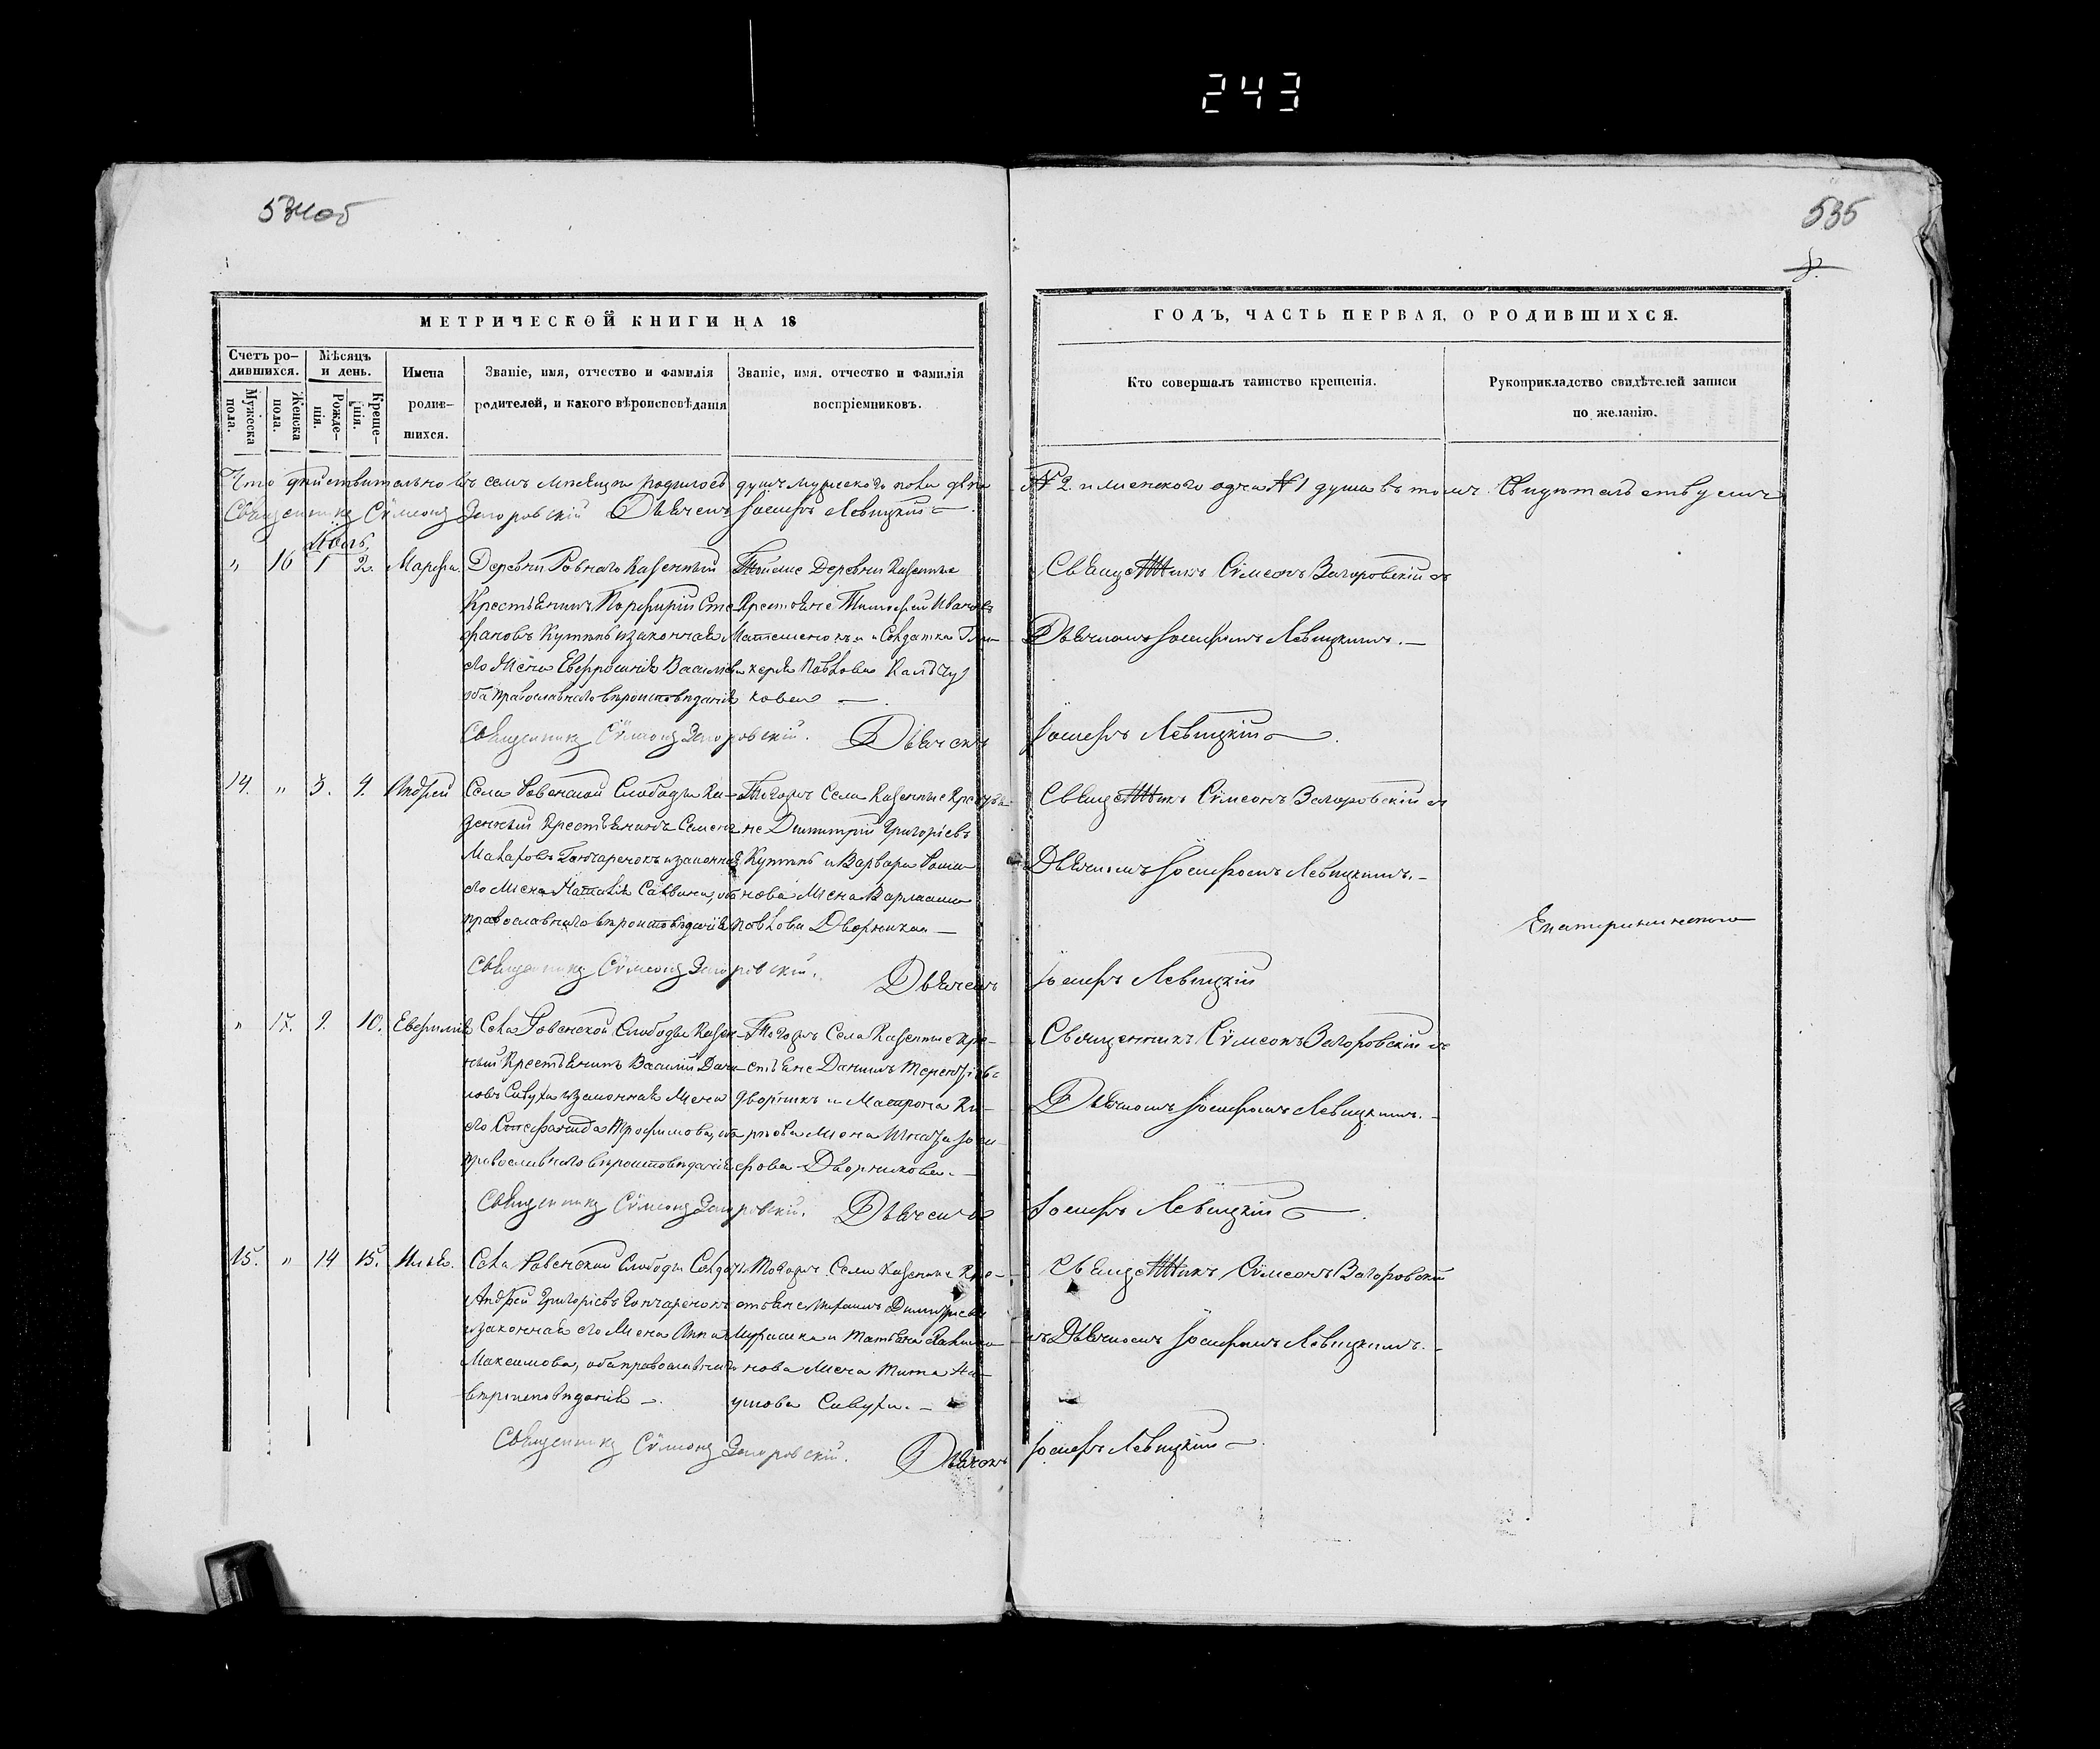 243
534об
535
МЕТРИЧЕСКОЙ КНИГИ НА 18
ГОДЪ, ЧАСТЬ ПЕРВАЯ, О РОДИВШИХСЯ.
Счетъ ро-
дившихся.
Мѣсяцъ
и день.
Имена
родив-
шихся.
Званіе, имя, отчество и фамилія
родителей, и какого вѣроисповѣданія
Званіе, имя, отчество и фамилія
воспріемниковъ.
Кто совершалъ таинство крещенія.
Рукоприкладство свидѣтелей записи
по желанію.
Мужеска
пола.
Женска
пола.
Рожде-
нія.
Креще-
нія.
Что дѣйствительно въ семъ мѣсяцѣ родилось душъ мужескаго пола два № 2. и женскаго одна № 1 душа въ томъ свидѣтельствуемъ
Священникъ Сѵмеонъ Загоровскій Дьячекъ Іосифъ Левицкій
Іюль
" 16 1 2. Марфа.
Деревни Ровнаго Казенный
Крестьянинъ Порфирій Сте-
фановъ Кутнъ и законная
его Жена Евфросинія Василіева
оба православнаго вѣроисповѣданія
Тойже Деревни Казенные
Крестьяне Тимофей Ивановъ
и Солдатка
Павлова
Священникъ Сѵмеонъ Загоровскій съ
Дьячкомъ Іосифомъ Левицкимъ.
Священникъ Сѵмеонъ Загоровскій. Дьячекъ Іосифъ Левицкій
14. " 3. 9. Андрей
Села Ровенской Слободы Ка-
зенный Крестьянинъ Семенъ
Макаровъ Гончаренокъ и законная
его Жена Наталія Саввина, оба
православнаго вѣроисповѣданія
Тогожъ Села Казенные Крестья-
не Димитрій Григоріевъ
Кутнъ и Варвара
нова Жена Варлаама
Павлова Дворника
Священникъ Сѵмеонъ Загоровскій съ
Дьячкомъ Іосифомъ Левицкимъ.
Священникъ Сѵмеонъ Загоровскій. Дьячекъ Іосифъ Левицкій
" 17. 9. 10. Евфимія
Села Ровенской Слободы Казен-
ный Крестьянинъ Василій Дани-
ловъ Сивуха и законная Жена
его Стефанида Трофимова, оба
православнаго вѣроисповѣданія
Тогожъ Села Казенные Кре-
стьяне Даніилъ Терентьевъ
Дворникъ и Матрона Ки-
рѣова Жена Игната Іоси-
фова Дворникова.
Священникъ Сѵмеонъ Загоровскій съ
Дьячкомъ Іосифомъ Левицкимъ.
Священникъ Сѵмеонъ Загоровскій. Дьячекъ Іосифъ Левицкій
15. " 14 15. Илья.
Села Ровенской Слободы Солдатъ
Андрей Григоріевъ Гончаренокъ
и законная его Жена Анна
Максимова, оба православнаго
вѣроисповѣданія
Тогожъ Села Казенные Кре-
стьяне Михаилъ Димитріевъ
и Татьяна
нова Жена Тита На-
умова Сивухи.
Священникъ Сѵмеонъ Загоровскій
съ Дьячкомъ Іосифомъ Левицкимъ.
Священникъ Сѵмеонъ Загоровскій. Дьячекъ Іосифъ Левицкій